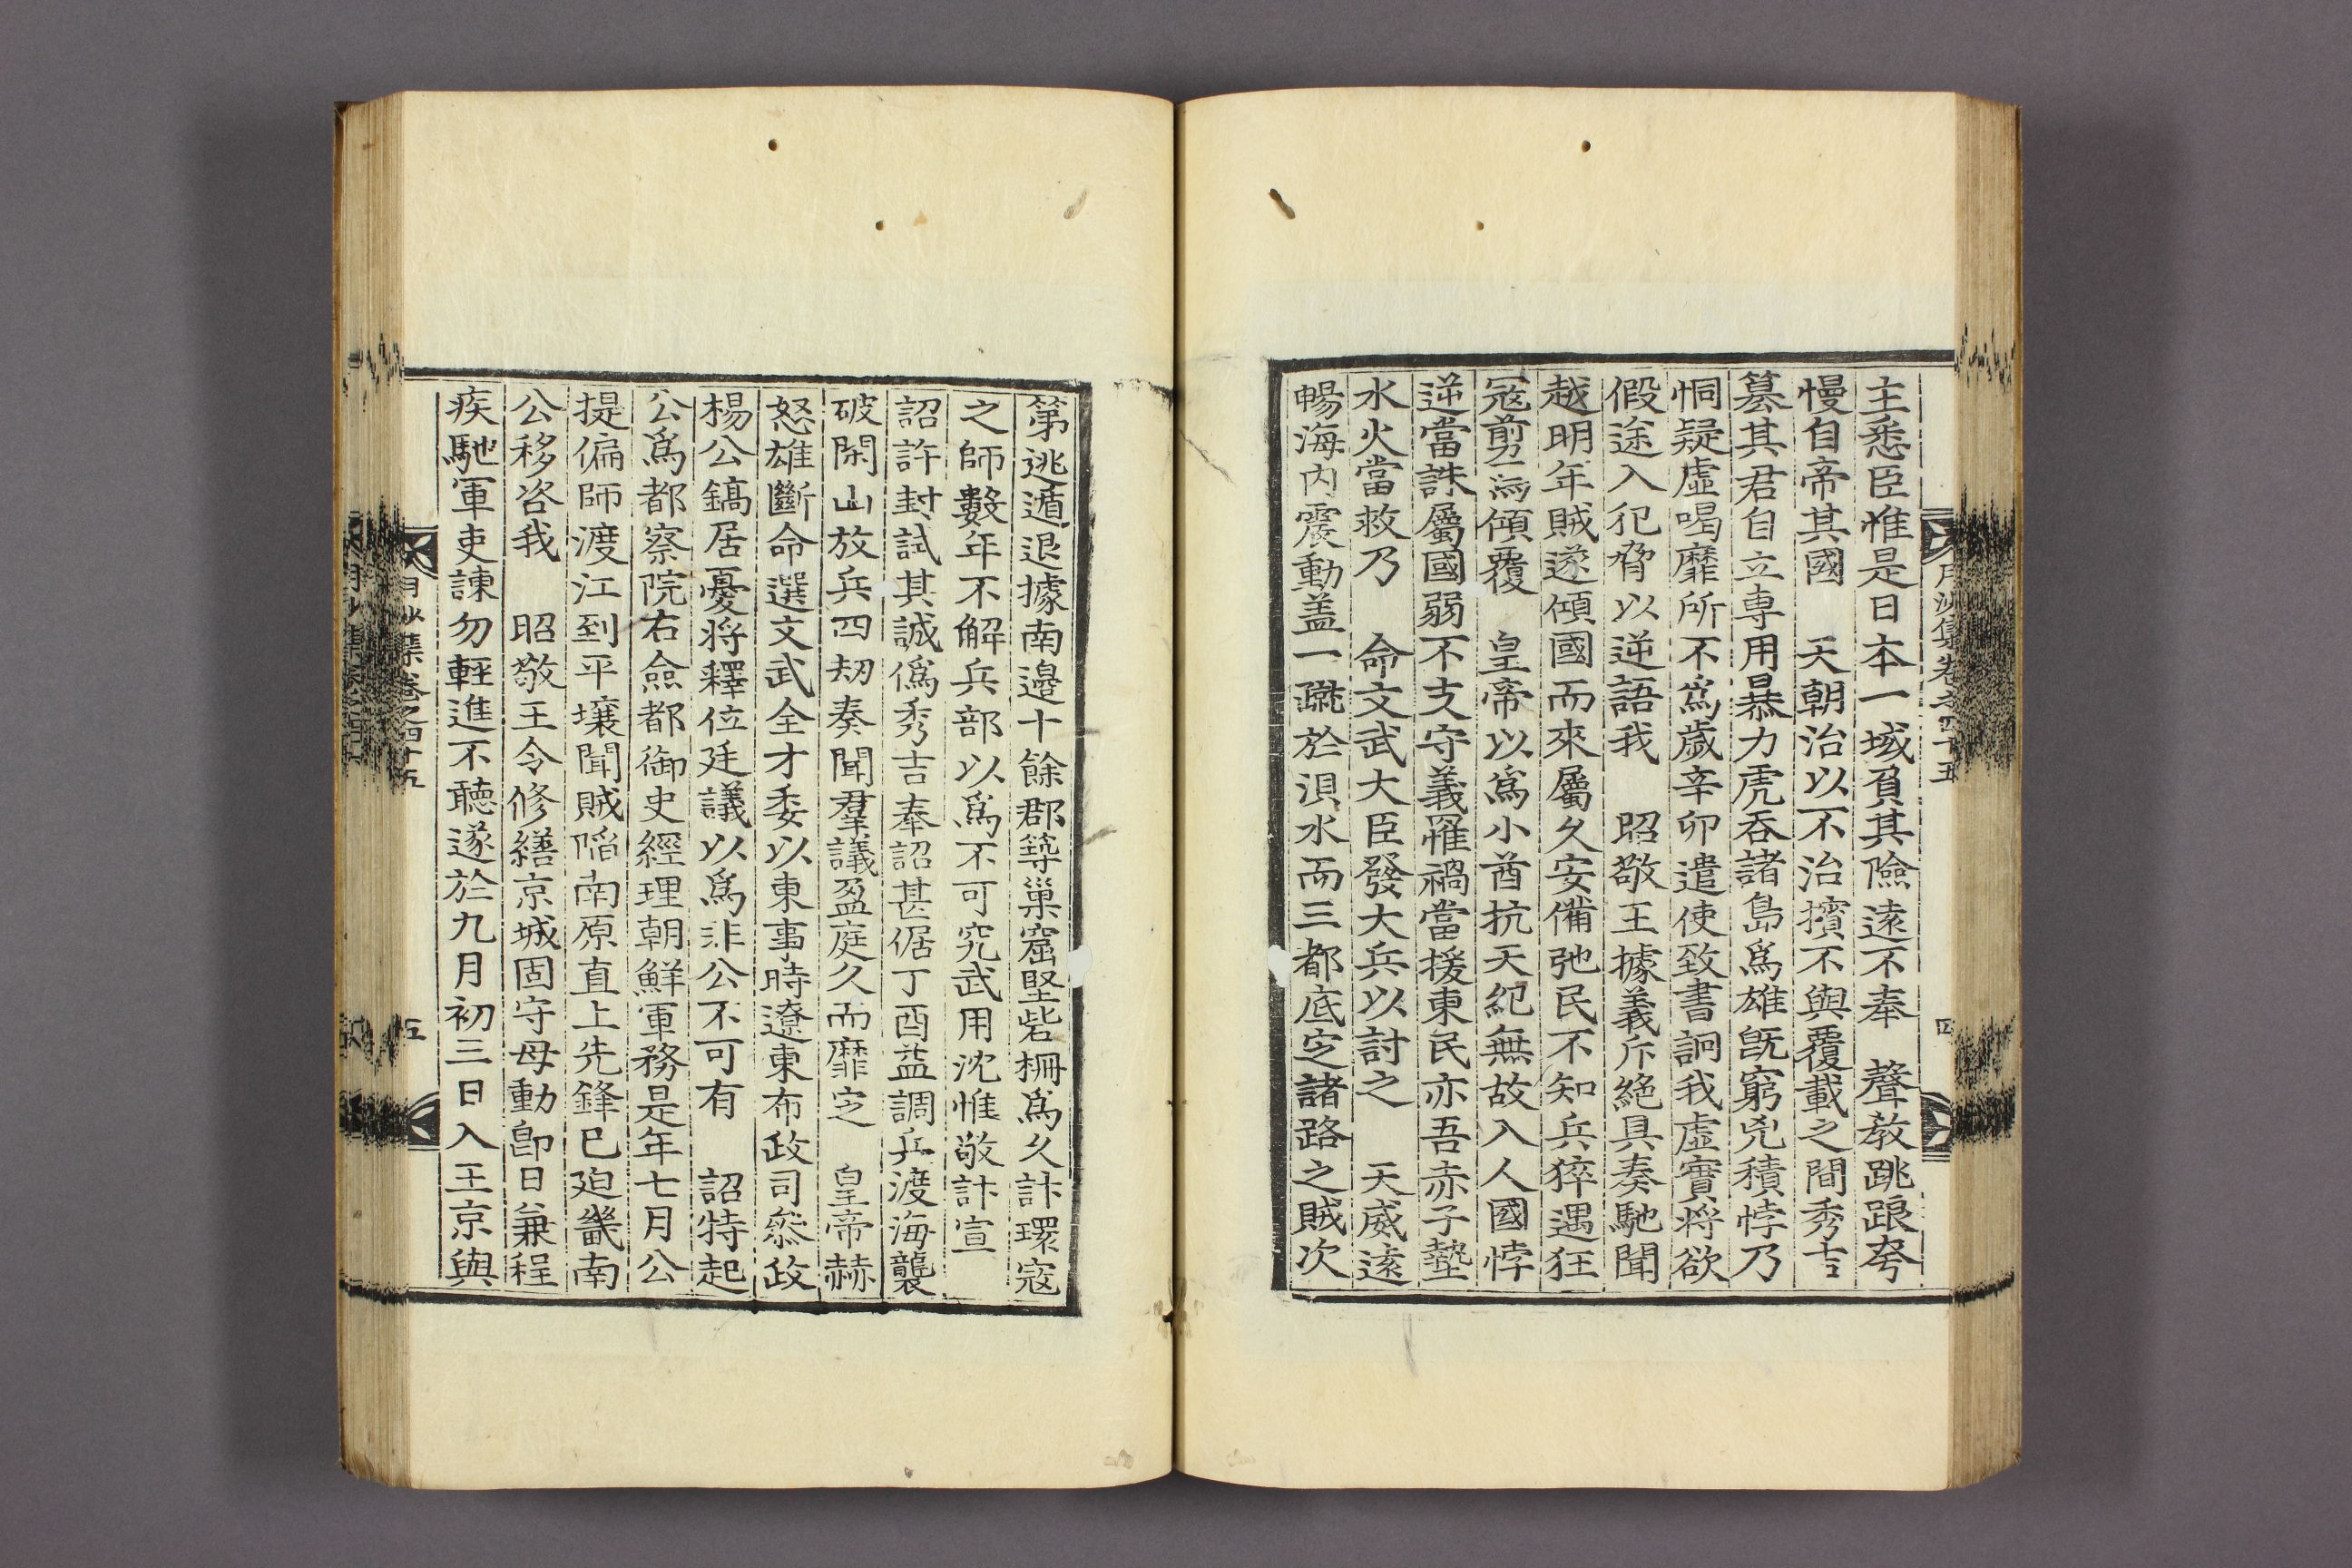 月沙集卷之四十五
四
主悉臣惟是日本一域負其險遠不奉 聲教跳踉夸
慢自帝其國 天朝治以不治擯不與覆載之間秀吉
簒其君自立專用暴力虎吞諸島爲雄旣窮兇積悖乃
恫疑虛喝靡所不爲歲辛卯遣使致書詗我虛實將欲
假途入犯脅以逆語我 昭敬王據義斥絕具奏馳聞
越明年賊遂傾國而來屬久安備弛民不知兵猝遇狂
寇剪焉傾覆 皇帝以爲小酋抗天紀無故入人國悖
逆當誅屬國弱不支守義罹禍當援東民亦吾赤子墊
水火當救乃 命文武大臣發大兵以討之 天威遠
暢海內震動盖一蹴於浿水而三都底定諸路之賊次
第逃遁退據南邊十餘郡築巢窟堅砦柵爲久計環寇
之師數年不解兵部以爲不可究武用沈惟敬計宣
詔許封試其誠僞秀吉奉詔甚倨丁酉益調兵渡海襲
破閑山放兵四刧奏聞羣議盈庭久而靡定 皇帝赫
怒雄斷命選文武全才委以東事時遼東布政司叅政
楊公鎬居憂將釋位廷議以爲非公不可有 詔特起
公爲都察院右僉都御史經理朝鮮軍務是年七月公
提偏師渡江到平壤聞賊陷南原直上先鋒已迫畿南
公移咨我 昭敬王令修繕京城固守毋動卽日兼程
疾馳軍吏諫勿輕進不聽遂於九月初三日入王京與
月沙集卷之四十五
五